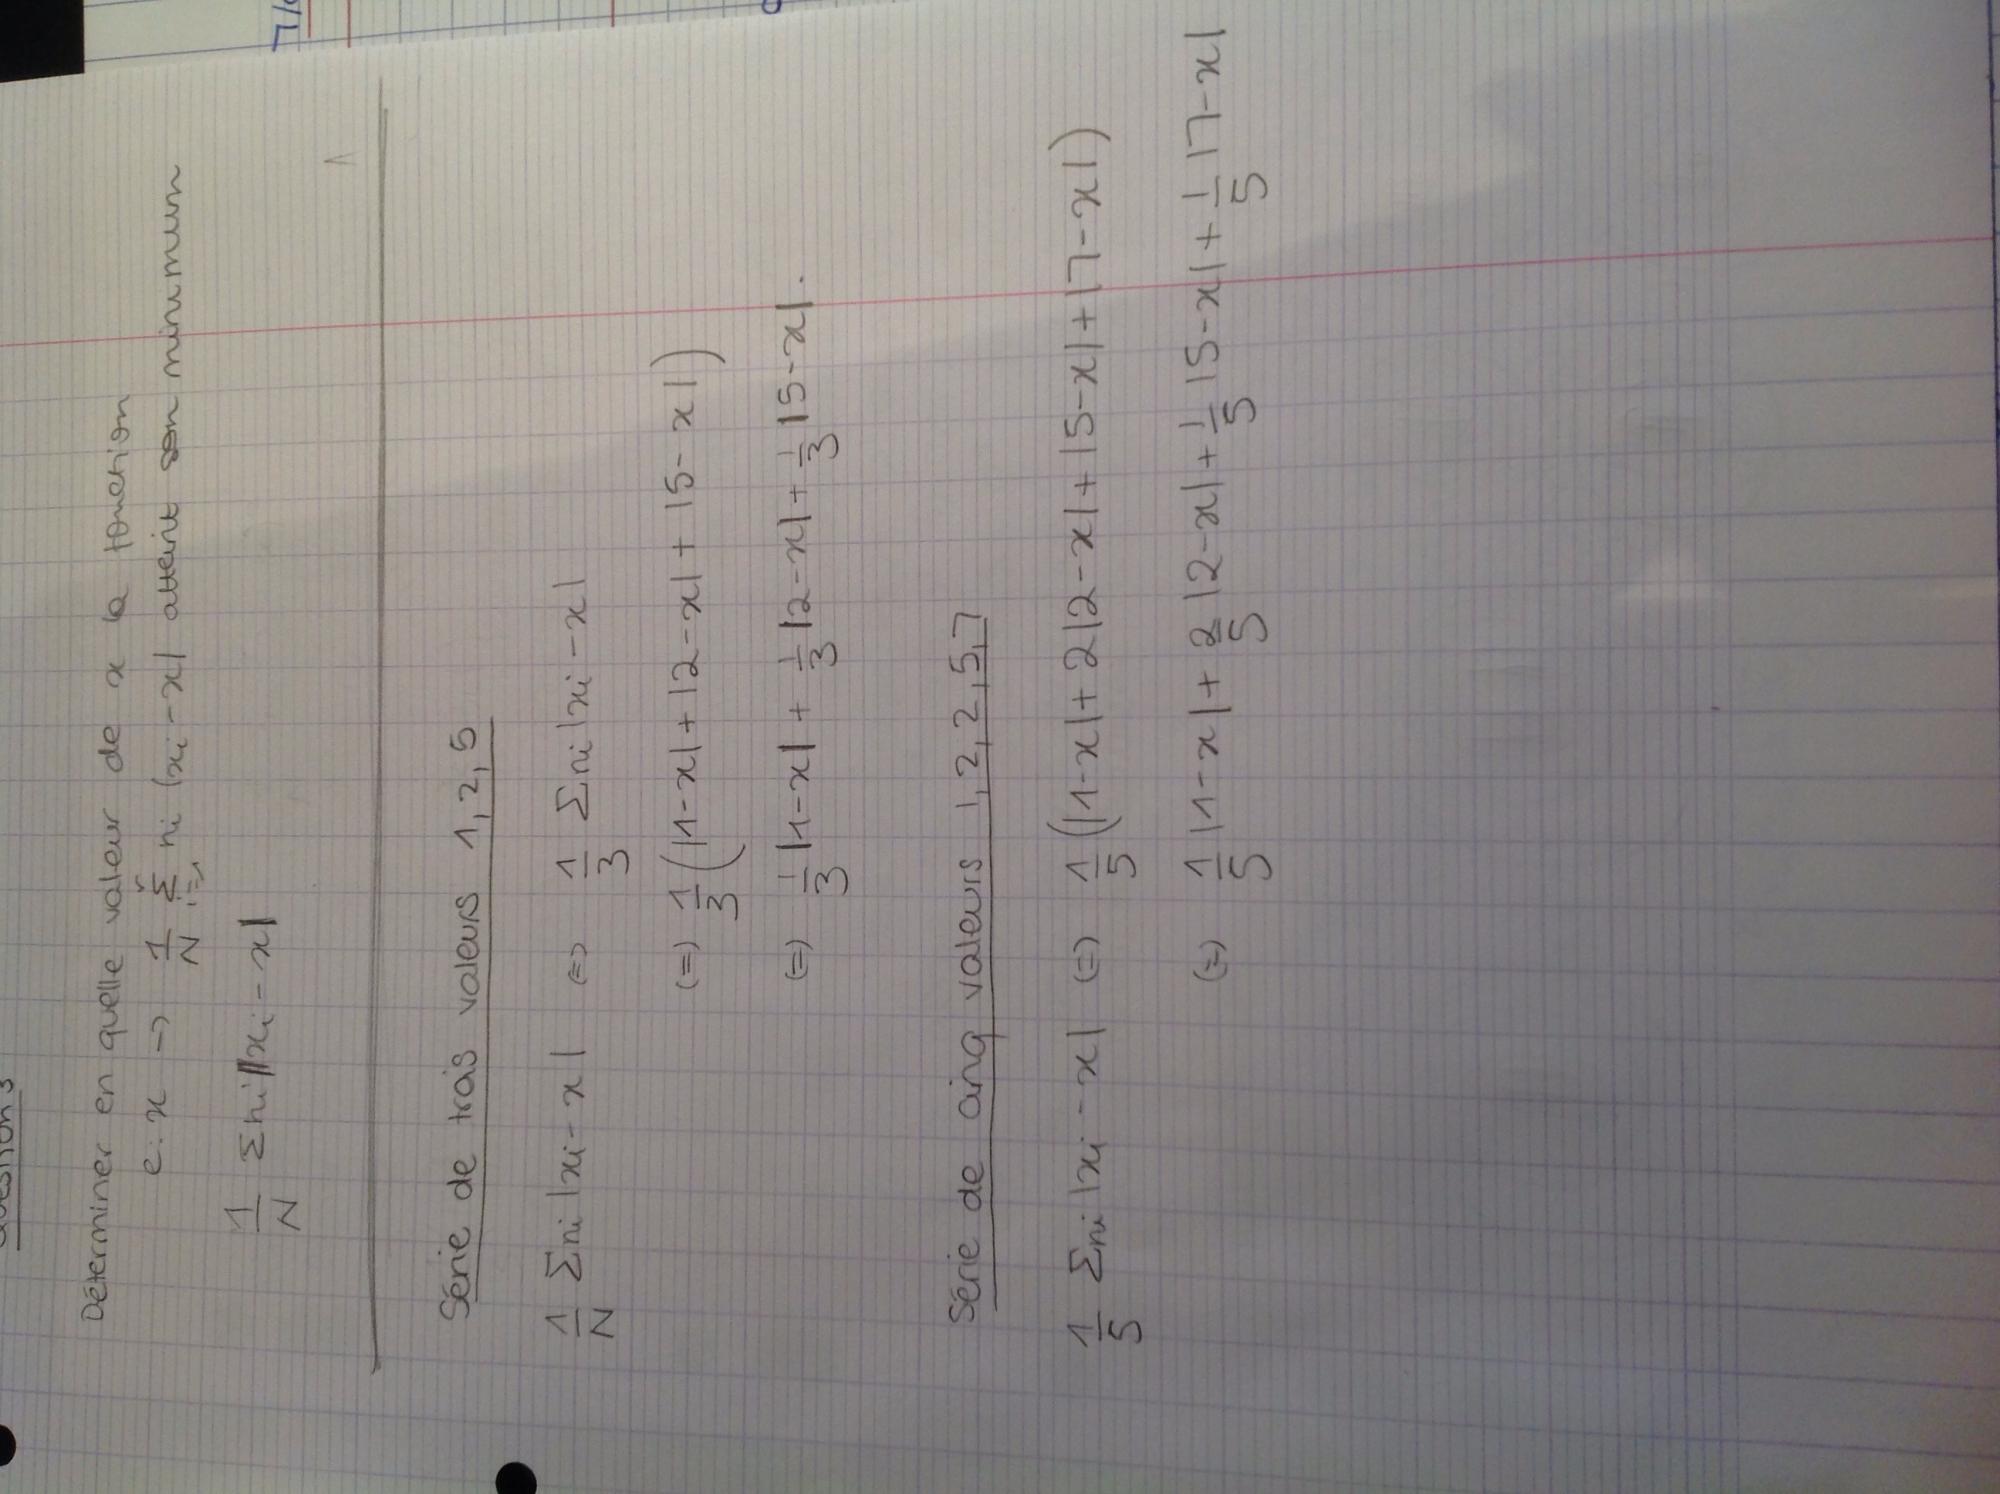 Question 3
Déterminer en quelle valeur de x la fonction
e: x → 1/N Σ i=1 ni |xi - x| atteint son minumum
1/N Σ ni |xi - x|
Série de trois valeurs 1, 2, 5
1/N Σ ni |xi - x| (=) 1/3 Σ ni |xi - x|
(=) 1/3 (|1 - x| + |2 - x| + |5 - x|)
(=) 1/3 |1 - x| + 1/3 |2 - x| + 1/3 |5 - x|.
Série de cinq valeurs 1, 2, 2, 5, 7
1/5 Σ ni |xi - x| (=) 1/5 (|1 - x| + 2|2 - x| + |5 - x| + |7 - x|)
(=) 1/5 |1 - x| + 2/5 |2 - x| + 1/5 |5 - x| + 1/5 |7 - x|